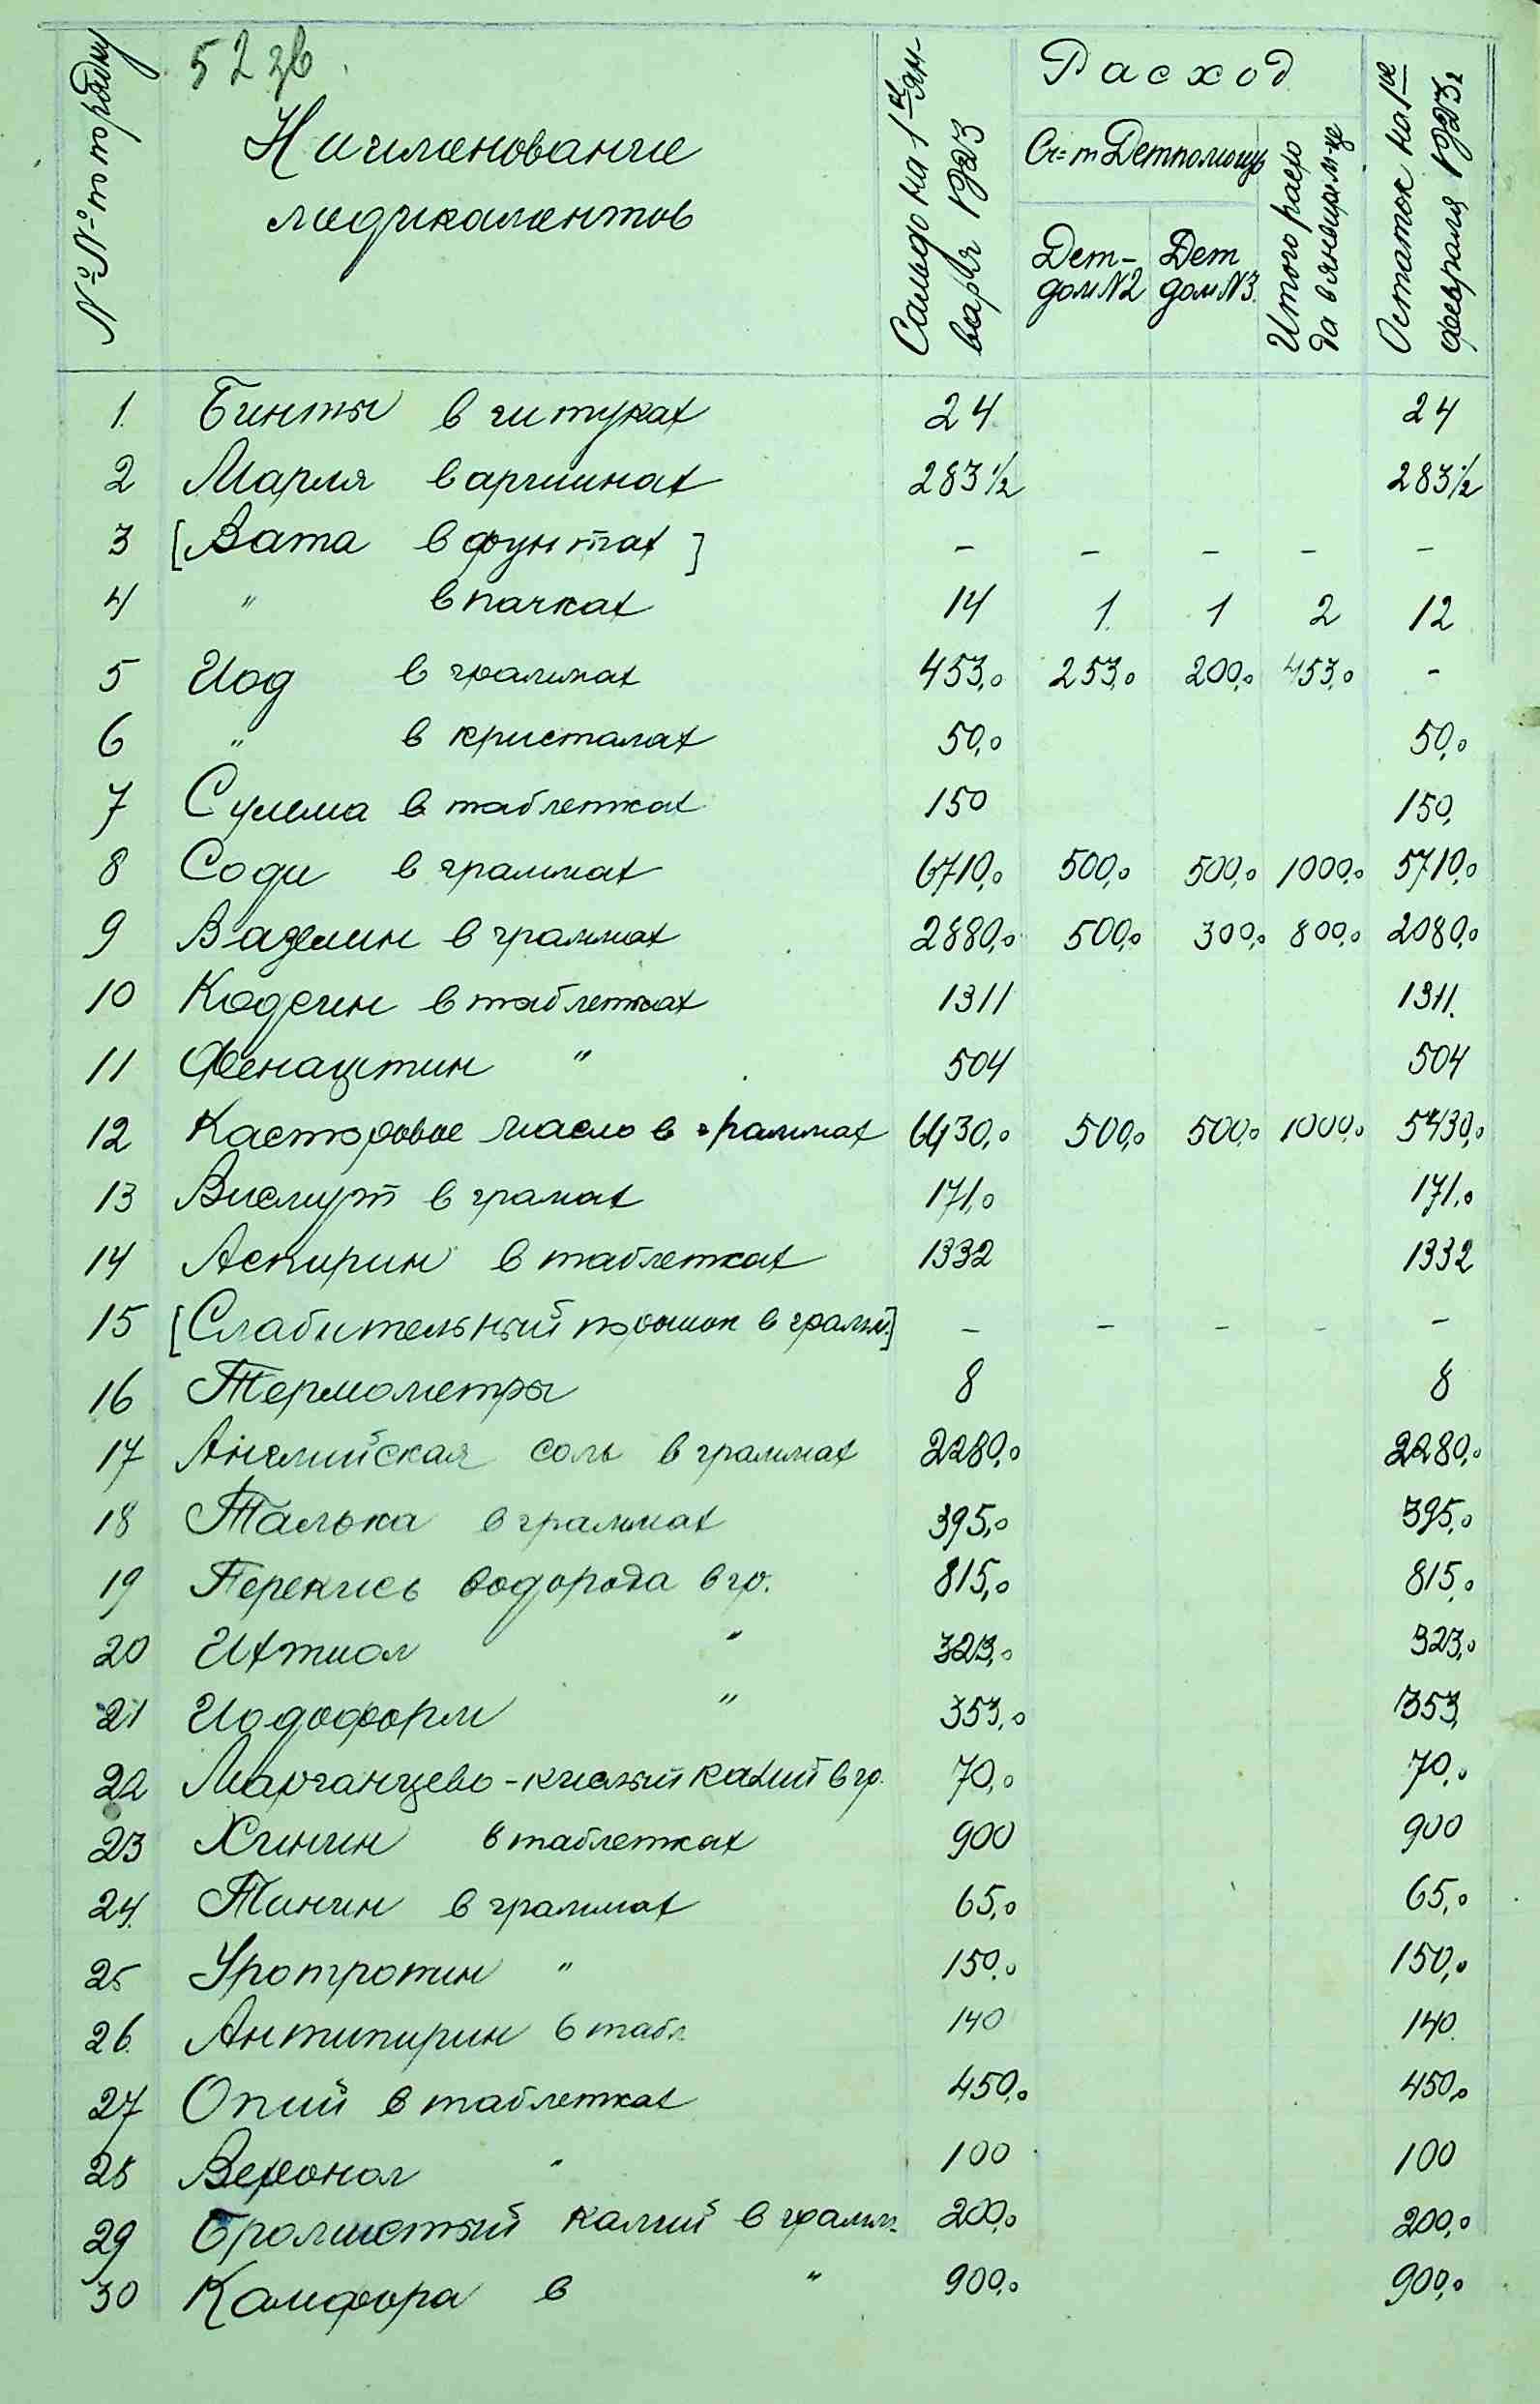 52 зв.
№№ по порядку
Наименование
медикаментов
Сальдо на 1ое ян-
варя 1923
Расход
Сч=т Детпомощь
Дет-
дом N2
Дет
дом N3.
Итого расхо
да в январе м-це
Остаток на 1ое
февраля 1923 г
1. Бинты в штуках 24 24
2 Марля в аршинах 283 1/2 283 1/2
3 [Вата в фунтах] – – – – –
4 " в пачках 14 1. 1 2 12
5 Иод в граммах 453,0 253,0 200,0 453,0 -
6 " в кристалах 50,0 50,0
7 Сулема в таблетках 150 150,
8 Соды в граммах 6710,0 500,0 500,0 1000,0 5710,0
9 Вазелин в граммах 2880,0 500,0 300,0 800,0 2080,0
10 Кодеин в таблетках 1311 1311.
11 Фенацтин " 504 504
12 Касторовое масло в граммах 6430,0 500,0 500,0 1000,0 5430,0
13 Висмут в грамах 171,0 171,0
14 Аспирин в таблетках 1332 1332
15 [Слабительный порошок в грамм.] – – – – –
16 Термометры 8 8
17 Английская соль в граммах 2280,0 2280,0
18 Талька в граммах 395,0 395,0
19 Перекись водорода в гр. 815,0 815,0
20 Ихтиол " 323,0 323,0
21 Иодоформ " 353,0 353,
22 Марганцево-кислый калий в гр. 70,0 70,0
23 Хинин в таблетках 900 900
24. Танин в граммах 65,0 65,0
25 Уротропин " 150,0 150,0
26. Антипирин в табл 140 140.
27 Опий в таблетках 450,0 450,0
28 Веронал " 100 100
29 Бромистый калий в грамм. 200,0 200,0
30 Камфора в " 900,0 900,0